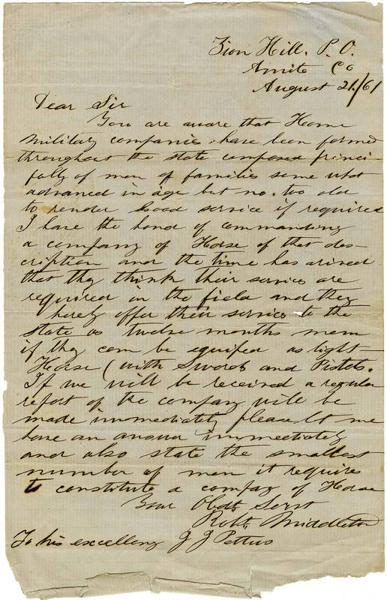 Zion Hill, P.O.
Amite Co
August 21/61
Dear Sir
You are aware that Home
military companies have been formed
throughout the state composed princi
pally of men of families some what
advanced in age but no. too old
to render good service if required
I have the honor of commanding
a company of Horse of that des-
cription and the time has arived
that they think their services are
required in the field and they
hereby offer their services to the
State as twelve months men
if they can be equiped as light
Horse (with Swords and Pistols.
If we will be received a regular
report of the company will be
made immediately please let me
have an answer immediately
and also state the smallest
number of men it requires
to constitute a company of Horse
Your Obdt Servt
Robt Middleton
To his excellency J J Pettus